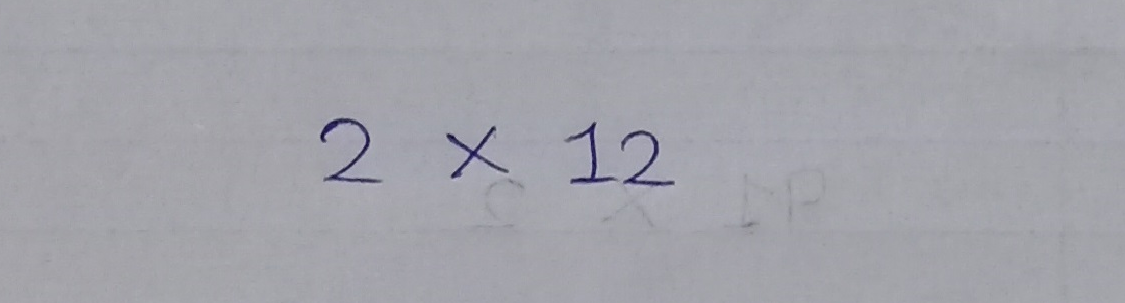 2 × 12